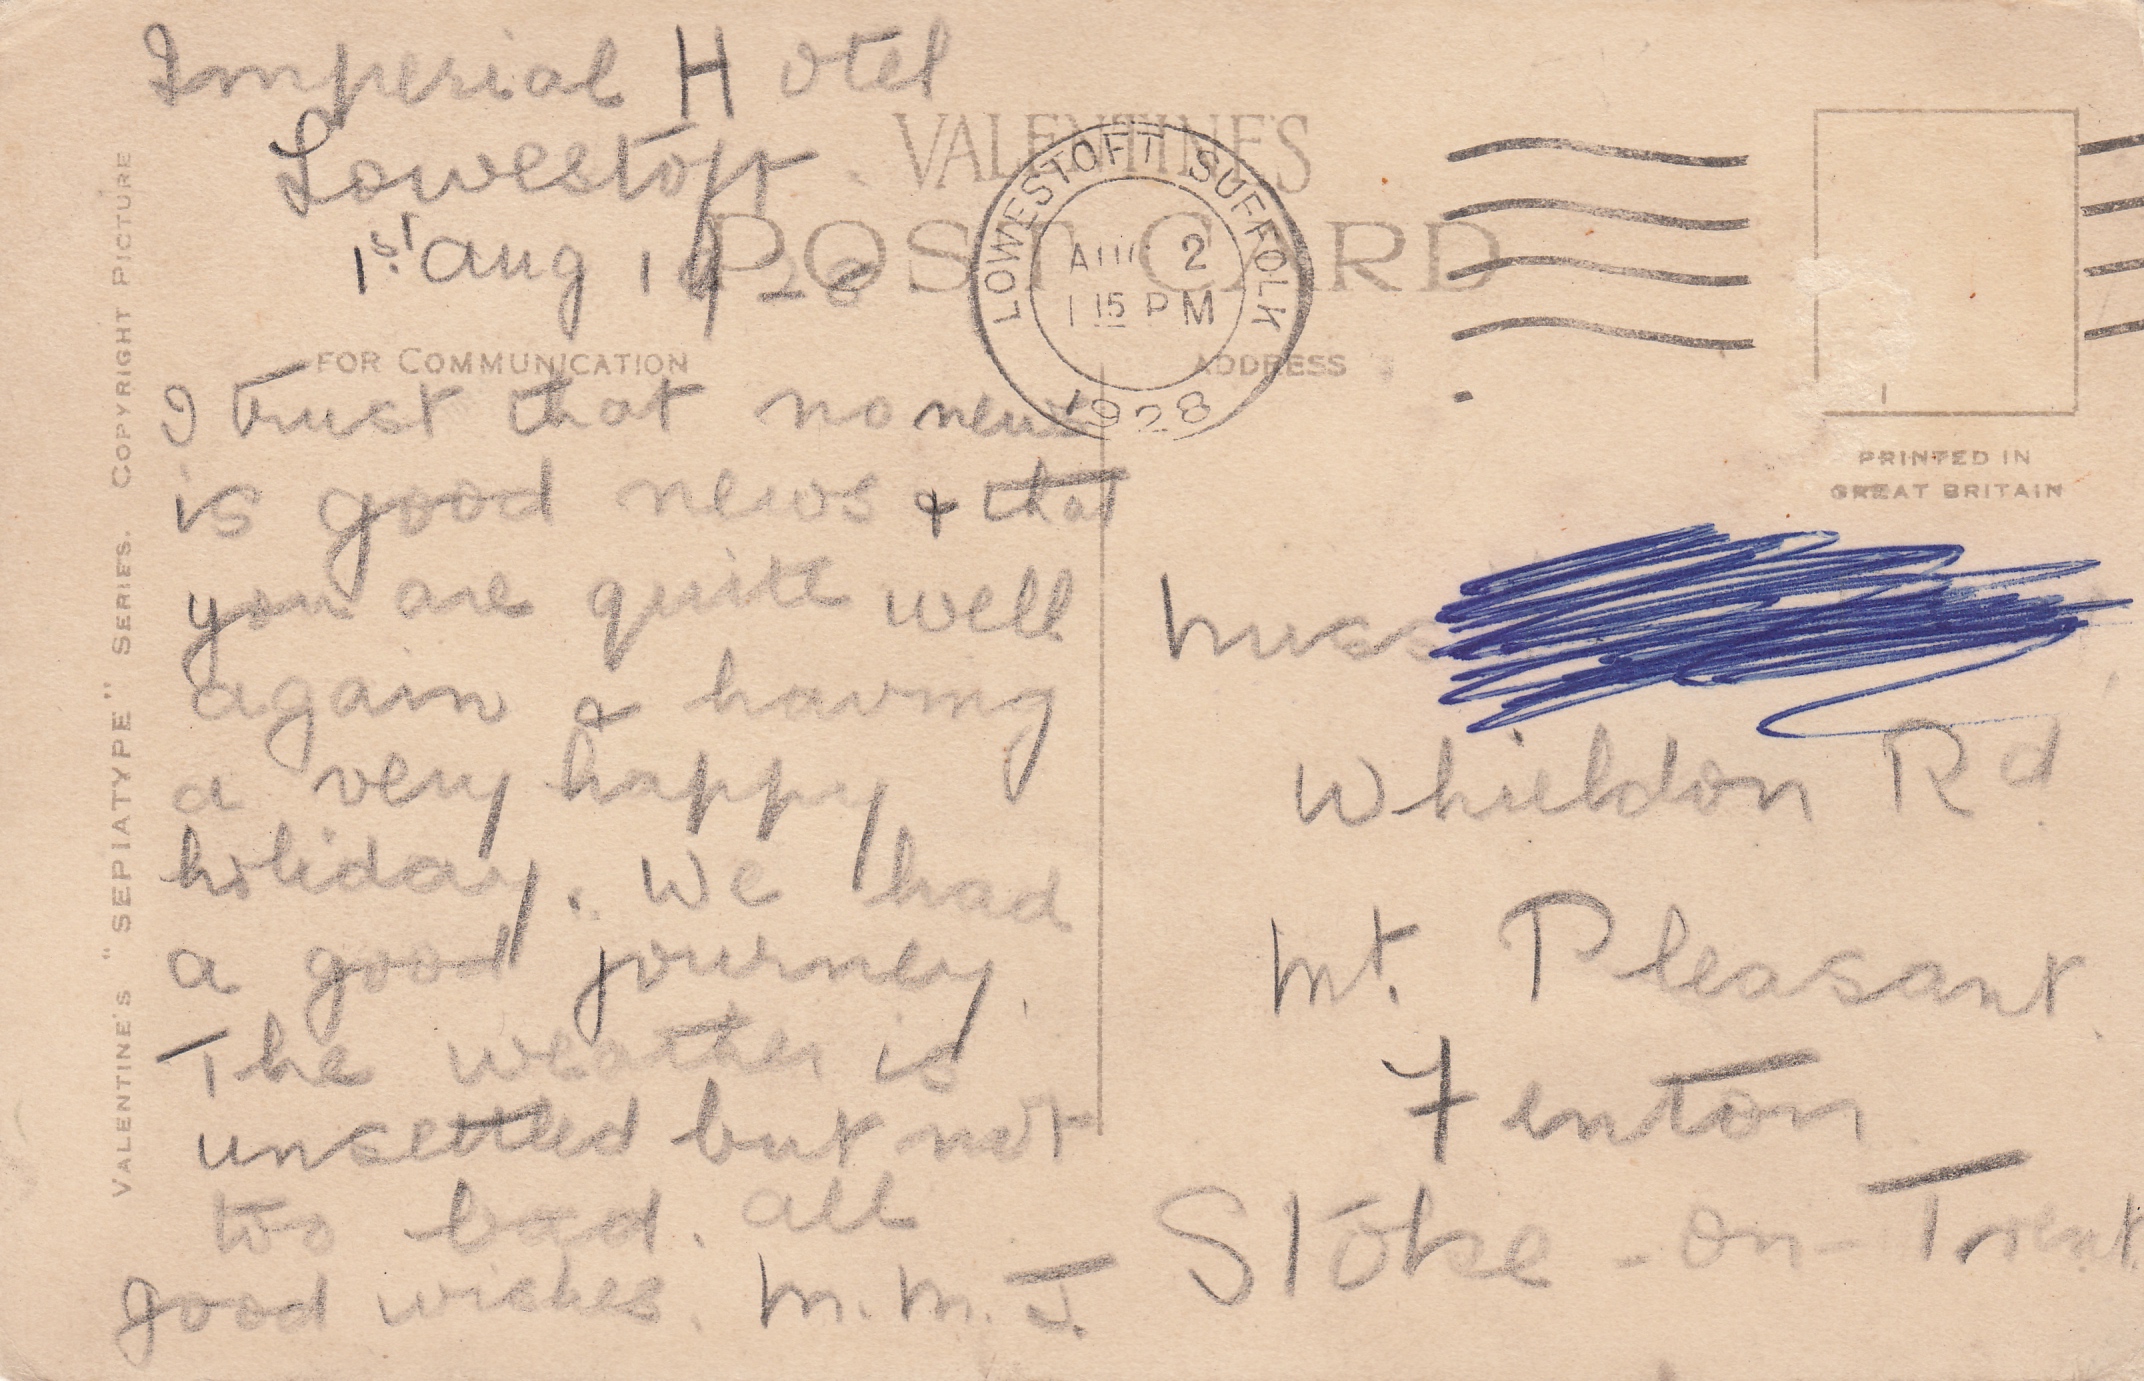 Imperial Hotel
Lowestoft
1st Aug 1928
VALENTINE'S
POST CARD
LOWESTOFT SUFFOLK
AUG 2
1 15 PM
1928
FOR COMMUNICATION
ADDRESS
PRINTED IN
GREAT BRITAIN
VALENTINE'S "SEPIATYPE" SERIES. COPYRIGHT PICTURE
I trust that no news
is good news & that
you are quite well
again & having
a very happy
holiday. We had
a good journey.
The weather is
unsettled but not
too bad. All
good wishes. M. M. J.
Miss
Whieldon Rd
Mt. Pleasant
Fenton
Stoke-on-Trent